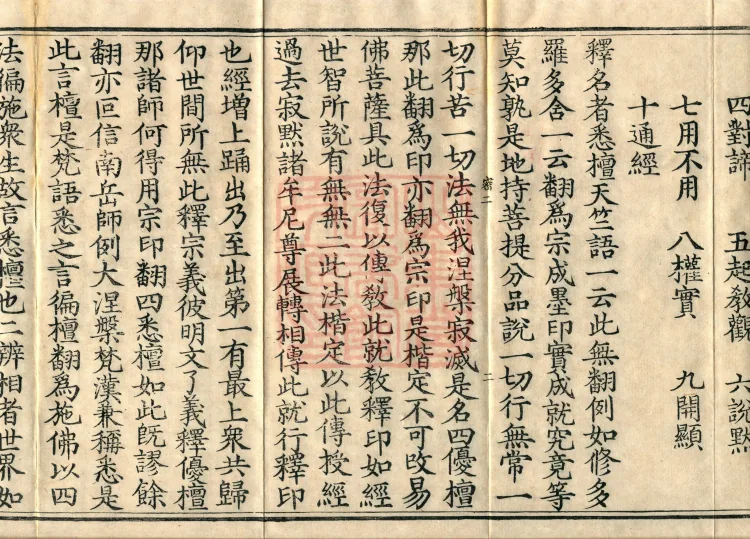 四對諦　五起教觀　六說默
七用不用　八權實　九開顯
十通經
釋名者悉檀天竺語一云此無翻例如修多
羅多舍一云翻爲宗成墨印實成就究竟等
莫知孰是地持菩提分品說一切行無常一
切行苦一切法無我涅槃寂滅是名四優檀
那此翻爲印亦翻爲宗印是楷定不可改易
佛菩薩具此法復以傳教此就教釋印如經
世智所說有無無二此法楷定以此傳授經
過去寂默諸牟尼尊展轉相傳此就行釋印
也經增上踊出乃至出第一有最上衆共歸
仰世間所無此釋宗義彼明文了義釋優檀
那諸師何得用宗印翻四悉檀如此既謬餘
翻亦叵信南岳師例大涅槃梵漢兼稱悉是
此言檀是梵語悉之言徧檀翻爲施佛以四
法徧施衆生故言悉檀也二辨相者世界如
密二
二